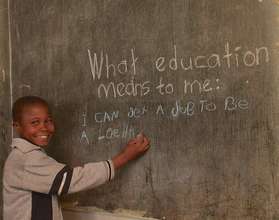 What education
means to me:
I CAN GET A JOB TO BE
A